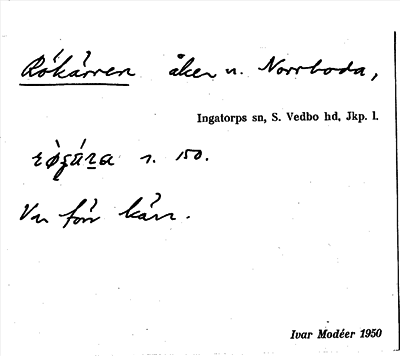 Rökärren åker n. Norrboda,
Ingatorps sn, S. Vedbo hd, Jkp. l.
s. 150.
Var förr kärr.
Ivar Modéer 1950